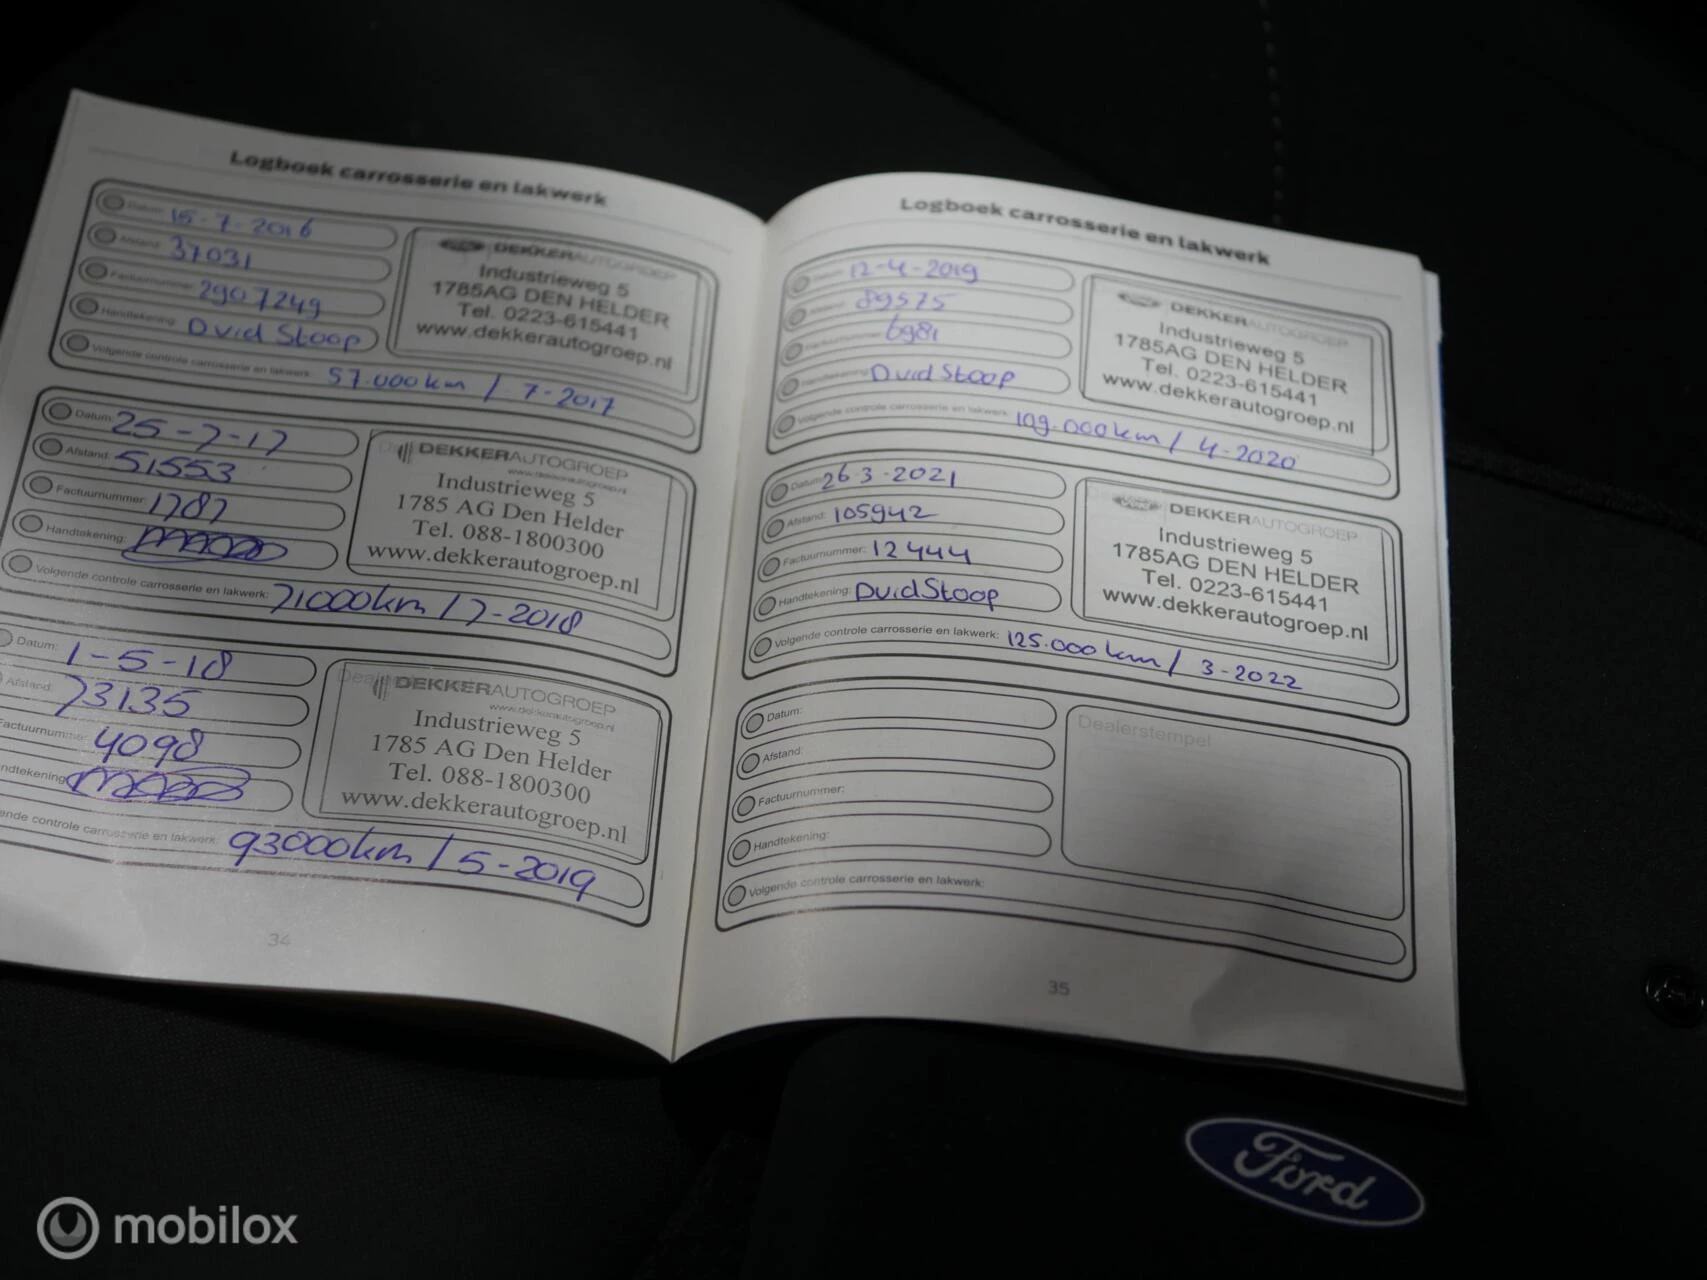 Logboek carrosserie en lakwerk
Datum: 15-7-2016
Afstand: 37031
Factuurnummer: 2907249
Handtekening: Dvid Stoop
Volgende controle carrosserie en lakwerk: 57.000km / 7-2017
DEKKERAUTOGROEP
Industrieweg 5
1785AG DEN HELDER
Tel. 0223-615441
www.dekkerautogroep.nl
Datum: 25-7-17
Afstand: 51553
Factuurnummer: 1787
Handtekening:
Volgende controle carrosserie en lakwerk: 71000km / 7-2018
DEKKERAUTOGROEP
www.dekkerautogroep.nl
Industrieweg 5
1785 AG Den Helder
Tel. 088-1800300
www.dekkerautogroep.nl
Datum: 1-5-18
Afstand: 73135
Factuurnummer: 4098
ndtekening:
ende controle carrosserie en lakwerk: 93000km / 5-2019
DEKKERAUTOGROEP
www.dekkerautogroep.nl
Industrieweg 5
1785 AG Den Helder
Tel. 088-1800300
www.dekkerautogroep.nl
34
Logboek carrosserie en lakwerk
Datum: 12-4-2019
Afstand: 89575
Factuurnummer: 6981
Handtekening: Dvid Stoop
Volgende controle carrosserie en lakwerk: 109.000km / 4-2020
DEKKERAUTOGROEP
Industrieweg 5
1785AG DEN HELDER
Tel. 0223-615441
www.dekkerautogroep.nl
Datum: 26-3-2021
Afstand: 105942
Factuurnummer: 12444
Handtekening: Dvid Stoop
Volgende controle carrosserie en lakwerk: 125.000km / 3-2022
DEKKERAUTOGROEP
Industrieweg 5
1785AG DEN HELDER
Tel. 0223-615441
www.dekkerautogroep.nl
Datum:
Afstand:
Factuurnummer:
Handtekening:
Volgende controle carrosserie en lakwerk:
Dealerstempel
35
Ford
mobilox